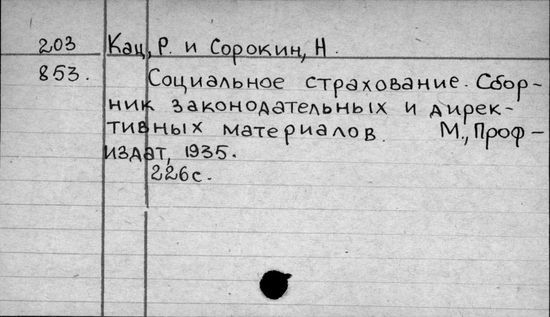 203 Кац, Р. и Сорокин, Н.
853. Социальное страхование. Сбор-
ник законодательных и дирек-
тивных материалов. М., Проф-
издат, 1935.
226с.